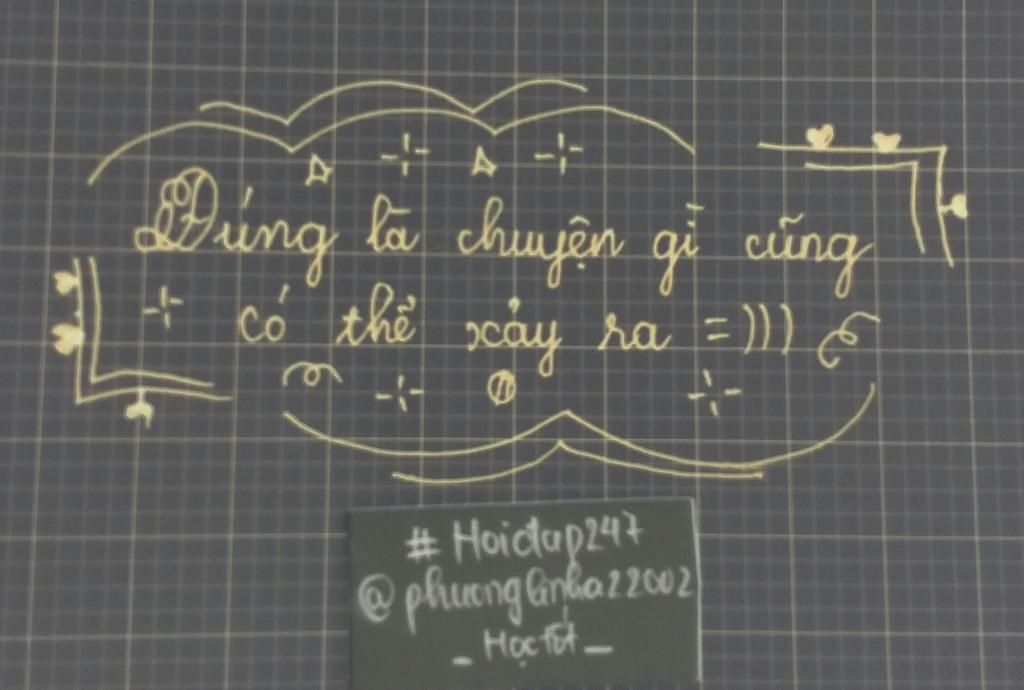 Đúng là chuyện gì cũng
có thể xảy ra =)))
# Hoidap247
@phuonglinha22002
_ Học tốt _